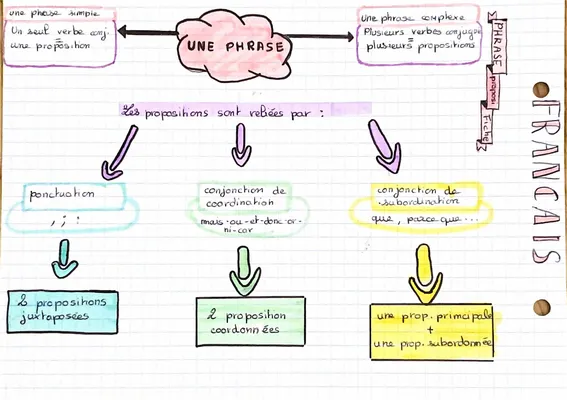 une phrase simple
Un seul verbe conj.
une proposition
UNE PHRASE
une phrase complexe
Plusieurs verbes conjugués
=
plusieurs propositions
PHRASE
proposi
Fiche
FRANCAIS
Les propositions sont reliées par :
ponctuation
, ; :
conjonction de
coordination
mais-ou-et-donc-or-
ni-car
conjonction de
subordination
que, parce que...
2 propositions
juxtaposées
2 proposition
coordonnées
une prop. principale
+
une prop. subordonnée